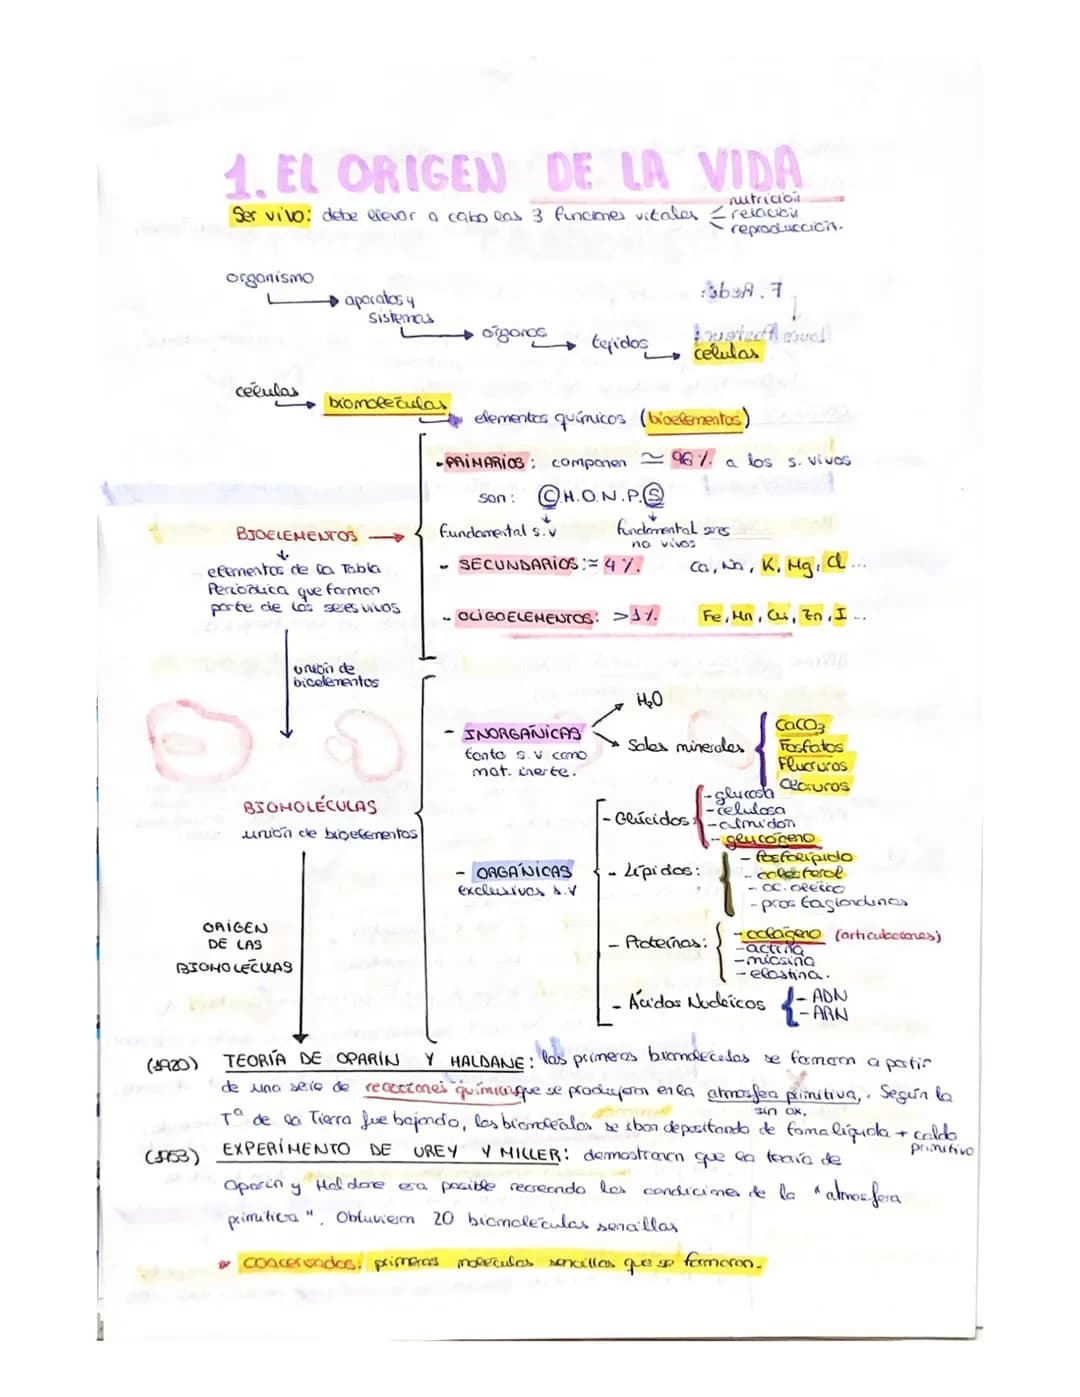 1. EL ORIGEN DE LA VIDA
Ser vivo: debe llevar a cabo las 3 funciones vitales
nutrición
relación
reproducción.
organismo
aparatos y
sistemas
órganos
tejidos
F. Redi:
Louis Pasteur:
células
células
biomoléculas
elementos químicos (bioelementos)
BIOELEMENTOS
elementos de la Tabla
Periódica que forman
porte de los seres vivos
- PRIMARIOS: componen ≃ 96% a los s. vivos
son: C H.O.N.P.S
fundamental s.v
fundamental seres
no vivos
- SECUNDARIOS: ≈ 4%. Ca, Na, K, Mg, Cl...
- OLIGOELEMENTOS: >1%. Fe, Mn, Cu, Zn, I...
unión de
bioelementos
BIOMOLÉCULAS
unión de bioelementos
- INORGÁNICAS
tanto s.v como
mat. inerte.
H₂O
Sales minerales
CaCO3
Fosfatos
Fluoruros
Cloruros
- ORGÁNICAS
exclusivas s.v
- Glúcidos:
- glucosa
- celulosa
- almidón
- glucógeno
- Lípidos:
- fosfolípido
- colesterol
- ac. oleico
- prostaglandinas
- Proteínas:
- colágeno (articulaciones)
- actina
- miosina
- elastina.
- Ácidos Nucleicos
- ADN
- ARN
ORIGEN
DE LAS
BIOMOLÉCULAS
(1920) TEORÍA DE OPARÍN Y HALDANE: las primeras biomoléculas se formaron a partir
de una serie de reacciones químicas que se produjeron en la atmosfea primitiva,. Según la
sin ox.
Tª de la Tierra fue bajando, las biomoléculas se iban depositando de forma líquida → caldo
primitivo
(1953) EXPERIMENTO DE UREY Y MILLER: demostraron que la teoría de
Oparin y Haldane era posible recreando las condiciones de la "atmosfera
primitiva". Obtuvieron 20 biomoléculas sencillas
coacervados: primeras moléculas sencillas que se formaron.